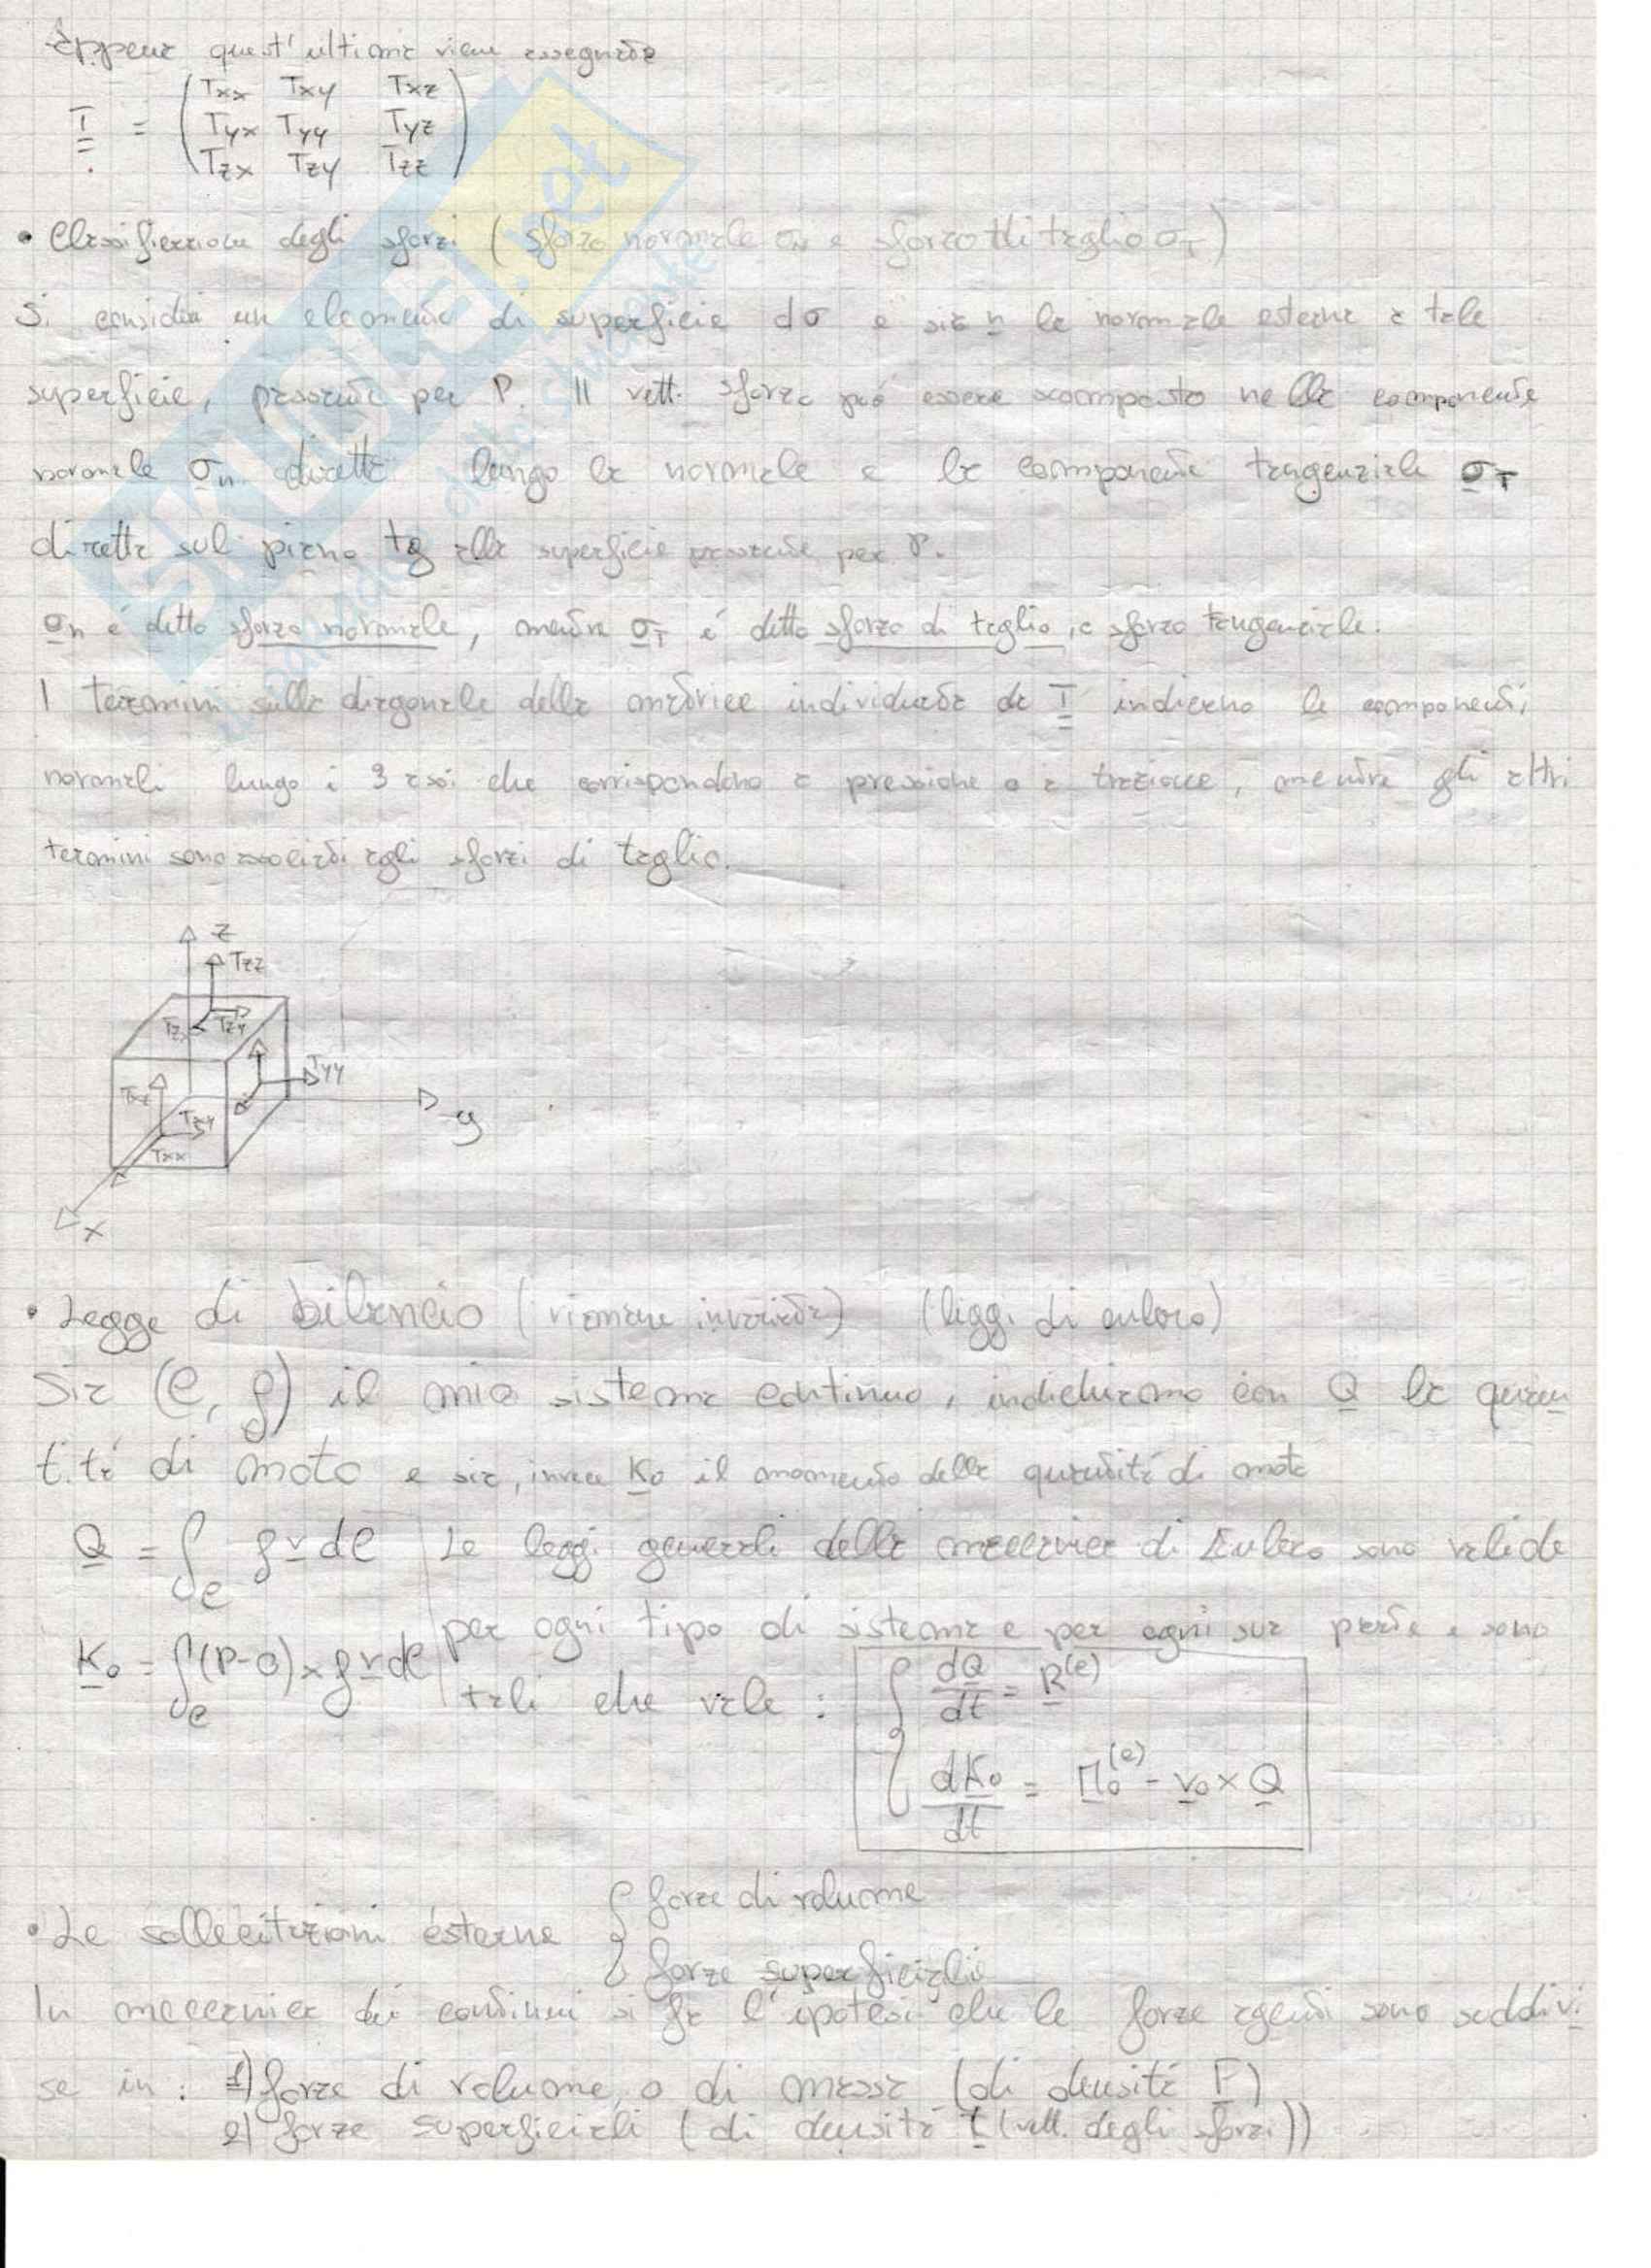 Appena quest'ultima viene assegnata
T = ( Txx Txy Txz
Tyx Tyy Tyz
Tzx Tzy Tzz )
• Classificazione degli sforzi ( sforzo normale σN e sforzo di taglio σT )
Si considera un elemento di superficie dσ e sia n la normale esterna a tale
superficie, passante per P. Il vett. sforzo può essere scomposto nella componente
normale σn diretta lungo la normale e la componente tangenziale σT
diretta sul piano tg alla superficie passante per P.
σn é detto sforzo normale, mentre σT é detto sforzo di taglio, o sforzo tangenziale.
I termini sulla diagonale della matrice individuata da T indicano le componenti
normali lungo i 3 assi che corrispondono a pressione o a trazione, mentre gli altri
termini sono associati agli sforzi di taglio.
z
Tzz
Tzx Tzy
Tyy
Txz
y
Txx
x
• Legge di bilancio ( rimane invariata) (leggi di eulero)
Sia (C, ρ) il mio sistema continuo, indichiamo con Q la quan
tità di moto e sia, invece Ko il momento della quantità di moto
Q = ∫C ρ v dC Le leggi generali della meccanica di Eulero sono valide
per ogni tipo di sistema e per ogni sua parte e sono
Ko = ∫C (P-O) × ρ v dC tali che vale :
dQ/dt = R(e)
dKo/dt = Mo(e) - vo × Q
• Le sollecitazioni esterne { forze di volume
forze superficiali
In meccanica dei continui si fa l'ipotesi che le forze agenti sono suddivi
se in : 1) forze di volume, o di massa (di densità F)
2) forze superficiali ( di densità t (vett. degli sforzi))
SKUOLA.net